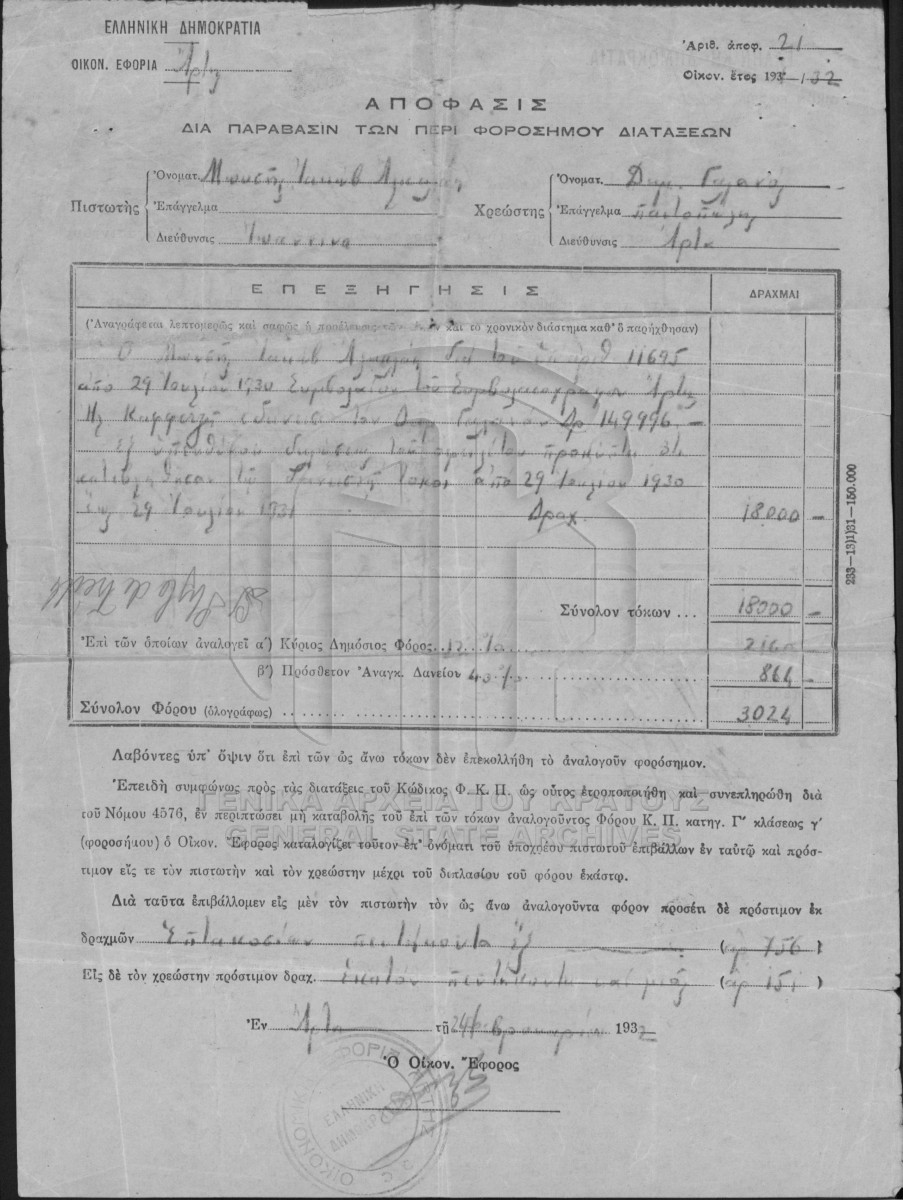 ΕΛΛΗΝΙΚΗ ΔΗΜΟΚΡΑΤΙΑ
ΟΙΚΟΝ. ΕΦΟΡΙΑ Άρτης
Ἀριθ. ἀποφ. 21
Οἰκον. ἔτος 193 /32
ΑΠΟΦΑΣΙΣ
ΔΙΑ ΠΑΡΑΒΑΣΙΝ ΤΩΝ ΠΕΡΙ ΦΟΡΟΣΗΜΟΥ ΔΙΑΤΑΞΕΩΝ
Πιστωτὴς
Ὀνοματ. Μωυσῆς Ἰακώβ
Ἐπάγγελμα
Διεύθυνσις Ἰωάννινα
Χρεώστης
Ὀνοματ. Δημ. Γαλανός
Ἐπάγγελμα παντοπώλης
Διεύθυνσις Ἄρτα
ΕΠΕΞΗΓΗΣΙΣ
ΔΡΑΧΜΑΙ
(Ἀναγράφεται λεπτομερῶς καὶ σαφῶς ἡ προέλευσις τῶν τόκων καὶ τὸ χρονικὸν διάστημα καθ' ὃ παρήχθησαν)
Ὁ Μωυσῆς Ἰακώβ διὰ τοῦ ὑπ' ἀριθ 11695
ἀπὸ 29 Ἰουλίου 1930 Συμβολαίου τοῦ Συμβολαιογράφου Ἄρτης
ἐδάνεισε τὸν Δημ. Γαλανὸν Δρ 149996 –
Ἐξ ὑπευθύνου δηλώσεως τοῦ προκύπτει ὅτι
τόκοι ἀπὸ 29 Ἰουλίου 1930
ἕως 29 Ἰουλίου 1931 Δραχ. 18000 –
Σύνολον τόκων ... 18000 –
Ἐπὶ τῶν ὁποίων ἀναλογεῖ α') Κύριος Δημόσιος Φόρος.. 12 % 2160
β') Πρόσθετον Ἀναγκ. Δανείου 40 % 864 –
Σύνολον Φόρου (ὁλογράφως) 3024
233—13)1)31—150.000
Λαβόντες ὑπ' ὄψιν ὅτι ἐπὶ τῶν ὡς ἄνω τόκων δὲν ἐπεκολλήθη τὸ ἀναλογοῦν φορόσημον.
Ἐπειδὴ συμφώνως πρὸς τὰς διατάξεις τοῦ Κώδικος Φ. Κ. Π. ὡς οὗτος ἐτροποποιήθη καὶ συνεπληρώθη διὰ
τοῦ Νόμου 4576, ἐν περιπτώσει μὴ καταβολῆς τοῦ ἐπὶ τῶν τόκων ἀναλογοῦντος Φόρου Κ. Π. κατηγ. Γ' κλάσεως γ'
(φοροσήμου) ὁ Οἰκον. Ἔφορος καταλογίζει τοῦτον ἐπ' ὀνόματι τοῦ ὑποχρέου πιστωτοῦ ἐπιβάλλων ἐν ταὐτῷ καὶ πρόσ-
τιμον εἴς τε τὸν πιστωτὴν καὶ τὸν χρεώστην μέχρι τοῦ διπλασίου τοῦ φόρου ἑκάστῳ.
ΓΕΝΙΚΑ ΑΡΧΕΙΑ ΤΟΥ ΚΡΑΤΟΥΣ
GENERAL STATE ARCHIVES
Διὰ ταῦτα ἐπιβάλλομεν εἰς μὲν τὸν πιστωτὴν τὸν ὡς ἄνω ἀναλογοῦντα φόρον προσέτι δὲ πρόστιμον ἐκ
δραχμῶν Ἑπτακοσίων πεντήκοντα ἕξ (δρ 756)
Εἰς δὲ τὸν χρεώστην πρόστιμον δραχ. ἑκατὸν πεντήκοντα καὶ μιᾶς (δρ 151)
Ἐν Ἄρτῃ τῇ 24 Φεβρουαρίου 1932
Ὁ Οἰκον. Ἔφορος
ΕΛΛΗΝΙΚΗ
ΔΗΜΟΚΡΑΤΙΑ